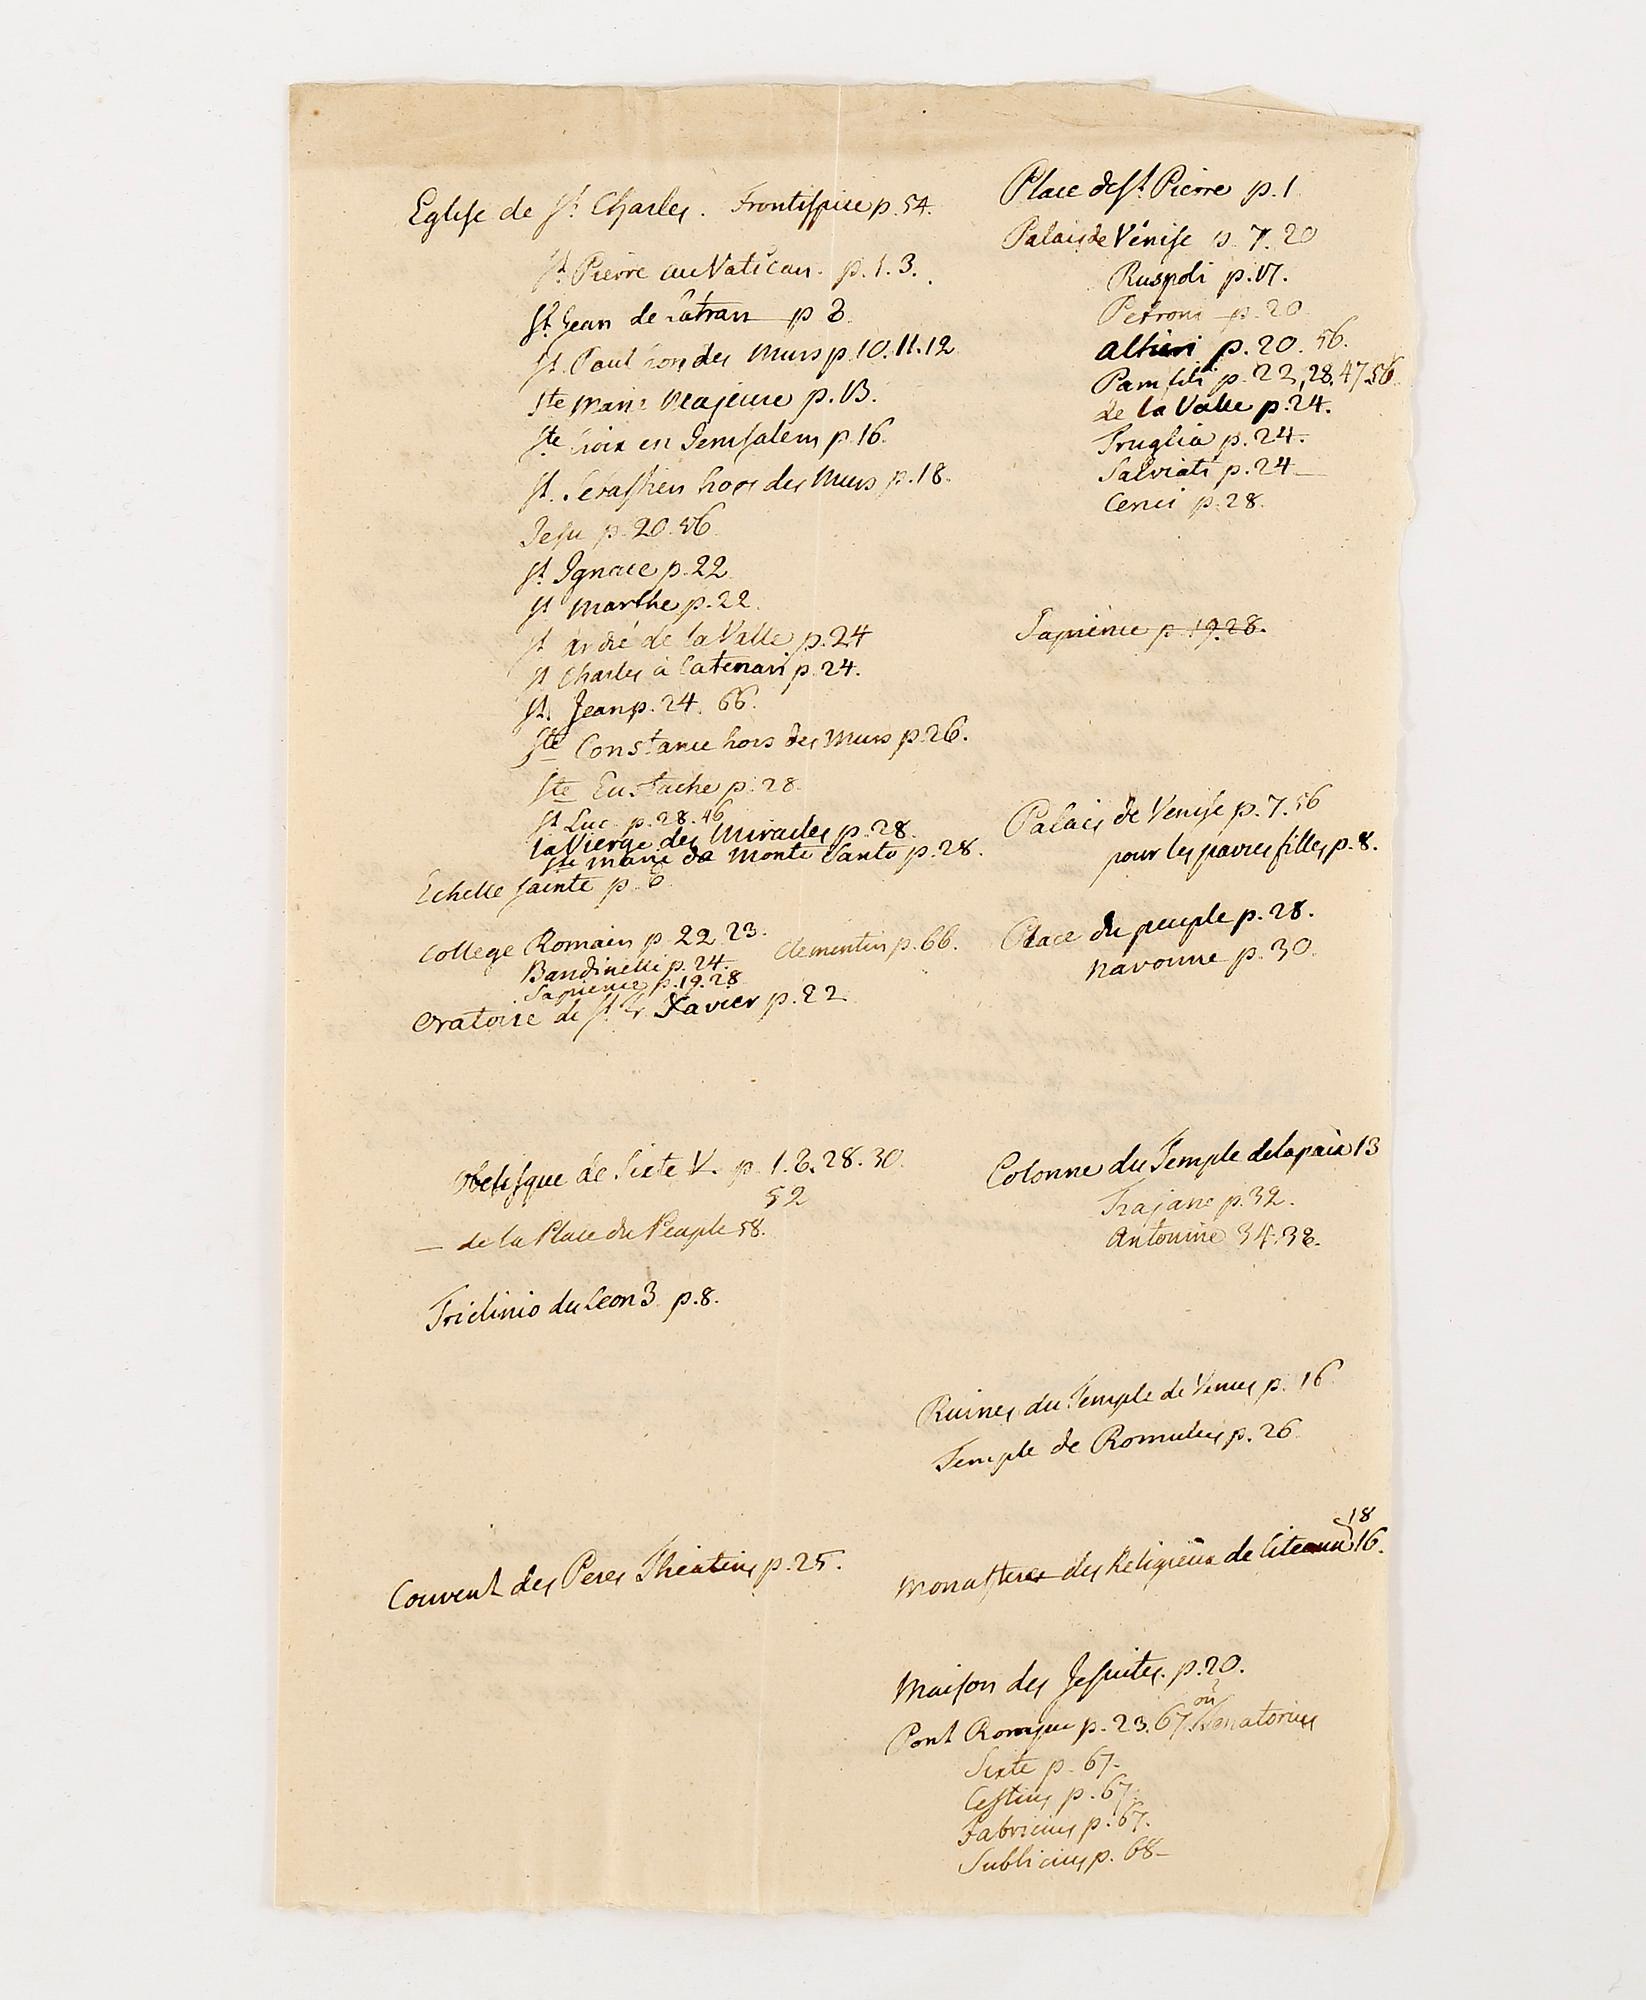 Eglise de St. Charles. Frontispice p. 54.
St. Pierre au Vatican. p. 1. 3.
St. Jean de Latran p 8
St. Paul hors des Murs p. 10. 11. 12
Ste Marie Majeure p. 13.
Ste Croix en Jerusalem p. 16.
St. Sebastien hors des Murs p. 18.
Jesu p. 20. 56
St. Ignace p. 22
St Marthe p. 22.
St André de la Valle p. 24
St Charles à Catenari p. 24.
St. Jean p. 24. 66.
Ste Constance hors des Murs p. 26.
Ste Eustache p. 28
St Luc p. 28. 46
la Vierge des Miracles p. 28.
Ste Marie de Monte Santo p. 28.
Echelle Sainte p. 6
College Romain p 22. 23. Clementin p. 66.
Bandinelli p. 24.
Sapience p. 19. 28
Oratoire de St. Fr. Xavier p. 22
Obelisque de Sixte V. p. 1. 6. 28. 30.
52
— de la Place du Peuple 58.
Triclinio du Leon 3 p. 8.
Couvent des Peres Théatins p. 25.
Place de St. Pierre p. 1
Palais de Vénise p. 7. 20
Ruspoli p. 17.
Petroni p. 20
Altieri p. 20. 56.
Pamfili p. 22, 28, 47 56
de la Valle p. 24.
Truglia p. 24.
Salviati p. 24
Cenci p. 28.
Sapience p. 19. 28.
Palais de Venise p. 7. 56
pour les pavres filles p. 8.
Place du peuple p. 28.
Navonne p. 30.
Colonne du Temple de la paix 13
Trajane p. 32.
Antonine 34. 38.
Ruines du Temple de Venus p. 16
Temple de Romulus p. 26
18
Monastere des Religieux de Citeaux 16.
Maison des Jesuites. p. 20.
ou
Pont Rompu p. 23. 67. Senatorius
Sixte p. 67.
Cestius p. 67.
Fabricius p. 67.
Sublicius p. 68